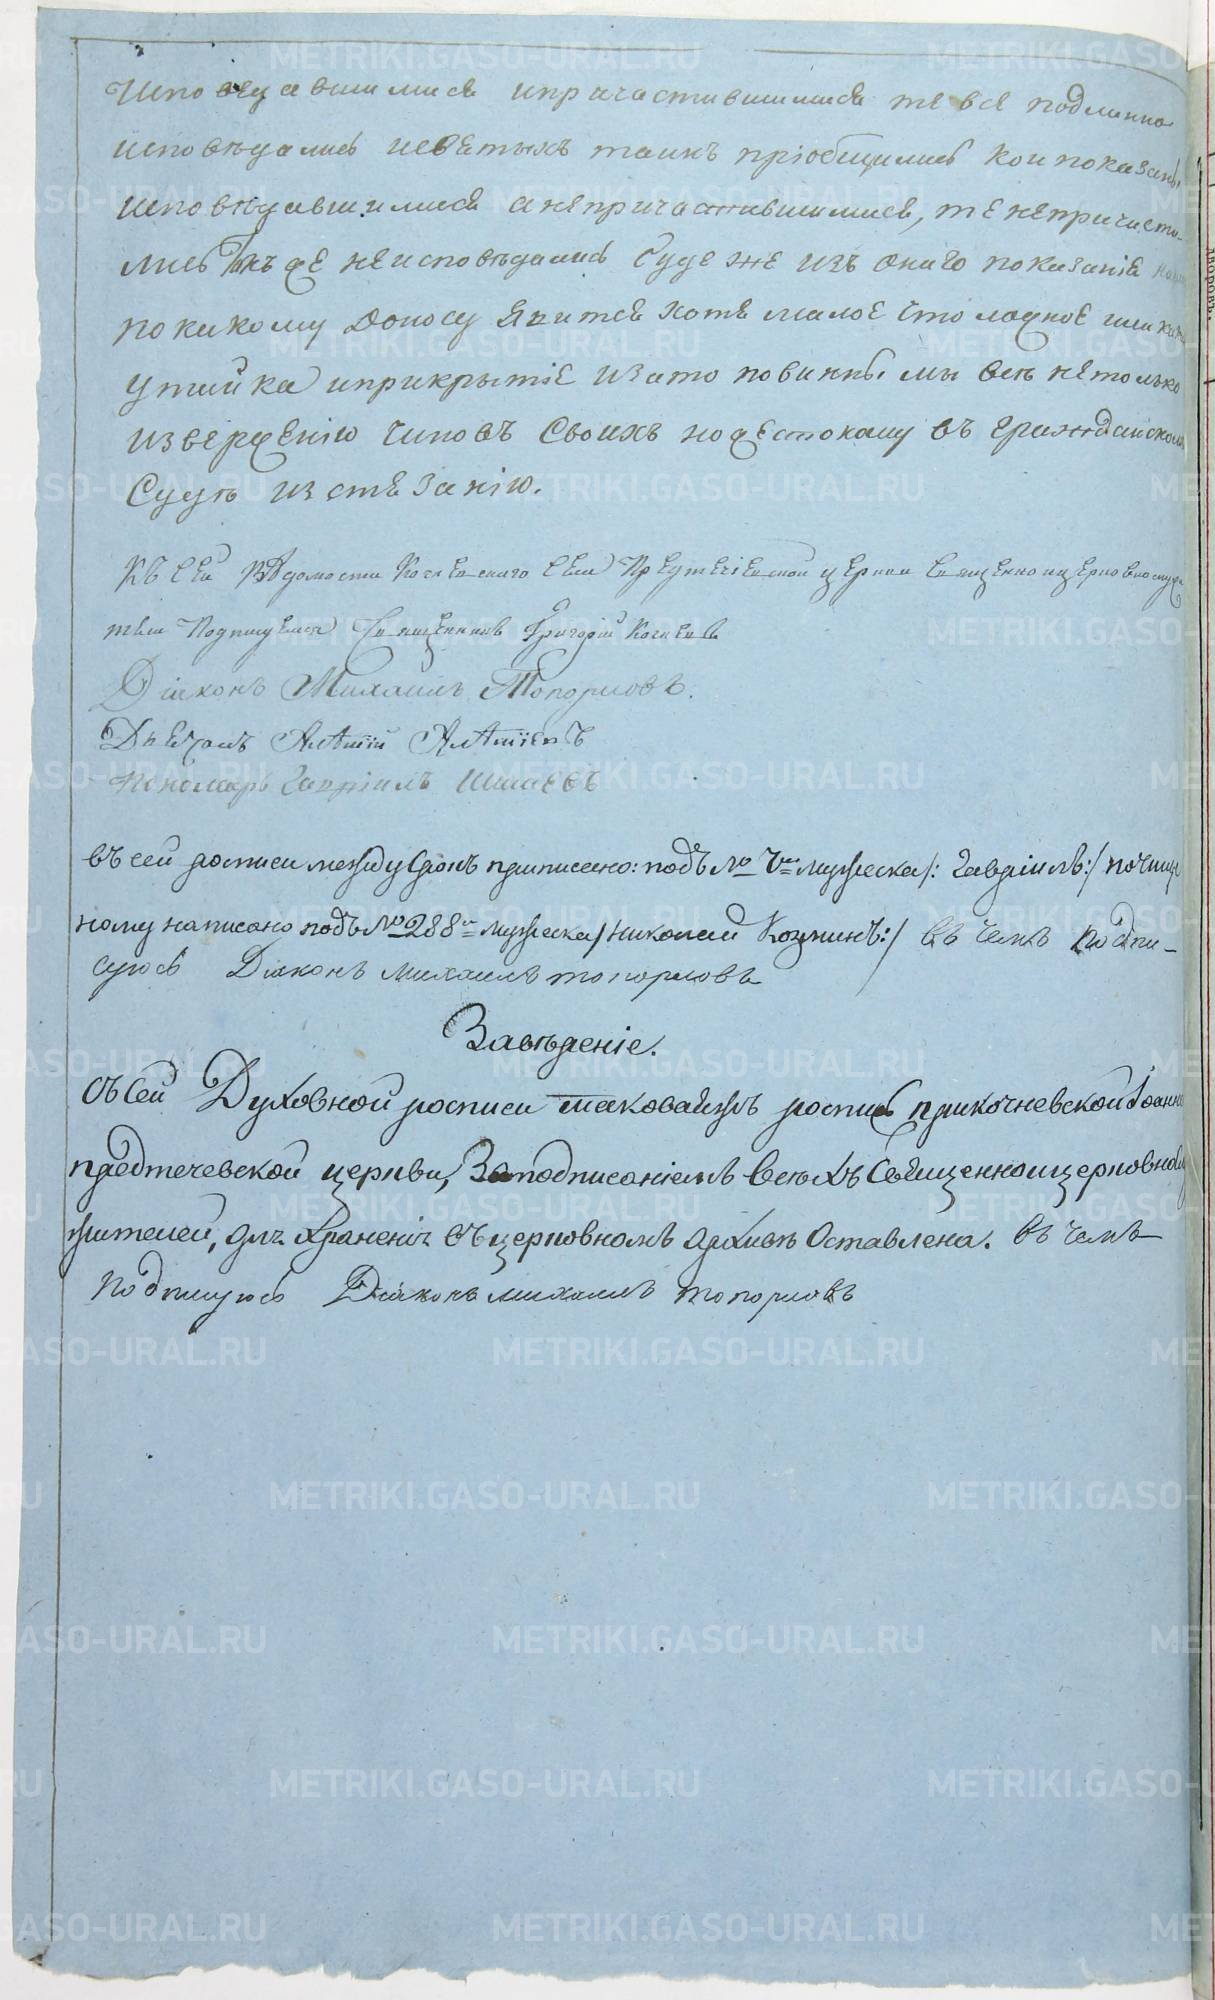 исповѣдавшимися ипричастившимися тѣ всѣ подлинно
исповѣдались исвѣтыхъ таинъ пріобщились кои показаны
исповѣдавшимися анепричастившимися, тѣ непричасти-
лись неисповѣдались буде же изъ онаго показаніе
покакому доносу явится хотя малое что ложное или
утайка иприкрытіе изато повинны мы всѣ нетолько
извержѣнію чиновъ своихъ ножестокому въ гражданскомъ
судѣ изстязанію.
Къ сей вѣдомости Кочневскаго села Предтечіевской церкви священноицерковнослужи
тели Подписуемся Священникъ Григорій Кочневъ
Діаконъ Михаилъ Топорковъ.
Дьячокъ
Пономарь Гавріилъ Ишаевъ
въ сей росписи между строкъ приписано: подъ № мужеска /: Гавріилъ :/ почищен
ному написано подъ № 288 мужеска / Николай Козминъ :/ въ чемъ подпи-
суюсь Діаконъ Михаилъ Топорковъ
Завѣреніе.
Съ сей Духовной росписи таковаяжъ роспись прикочневской Іоанно
предтечевской церкви, Заподписаніемъ всѣхъ священноицерковнослу
жителей, для храненія въ церковномъ архивѣ оставлена. въ чемъ
подписуюсь Діаконъ Михаилъ Топорковъ
METRIKI.GASO-URAL.RU